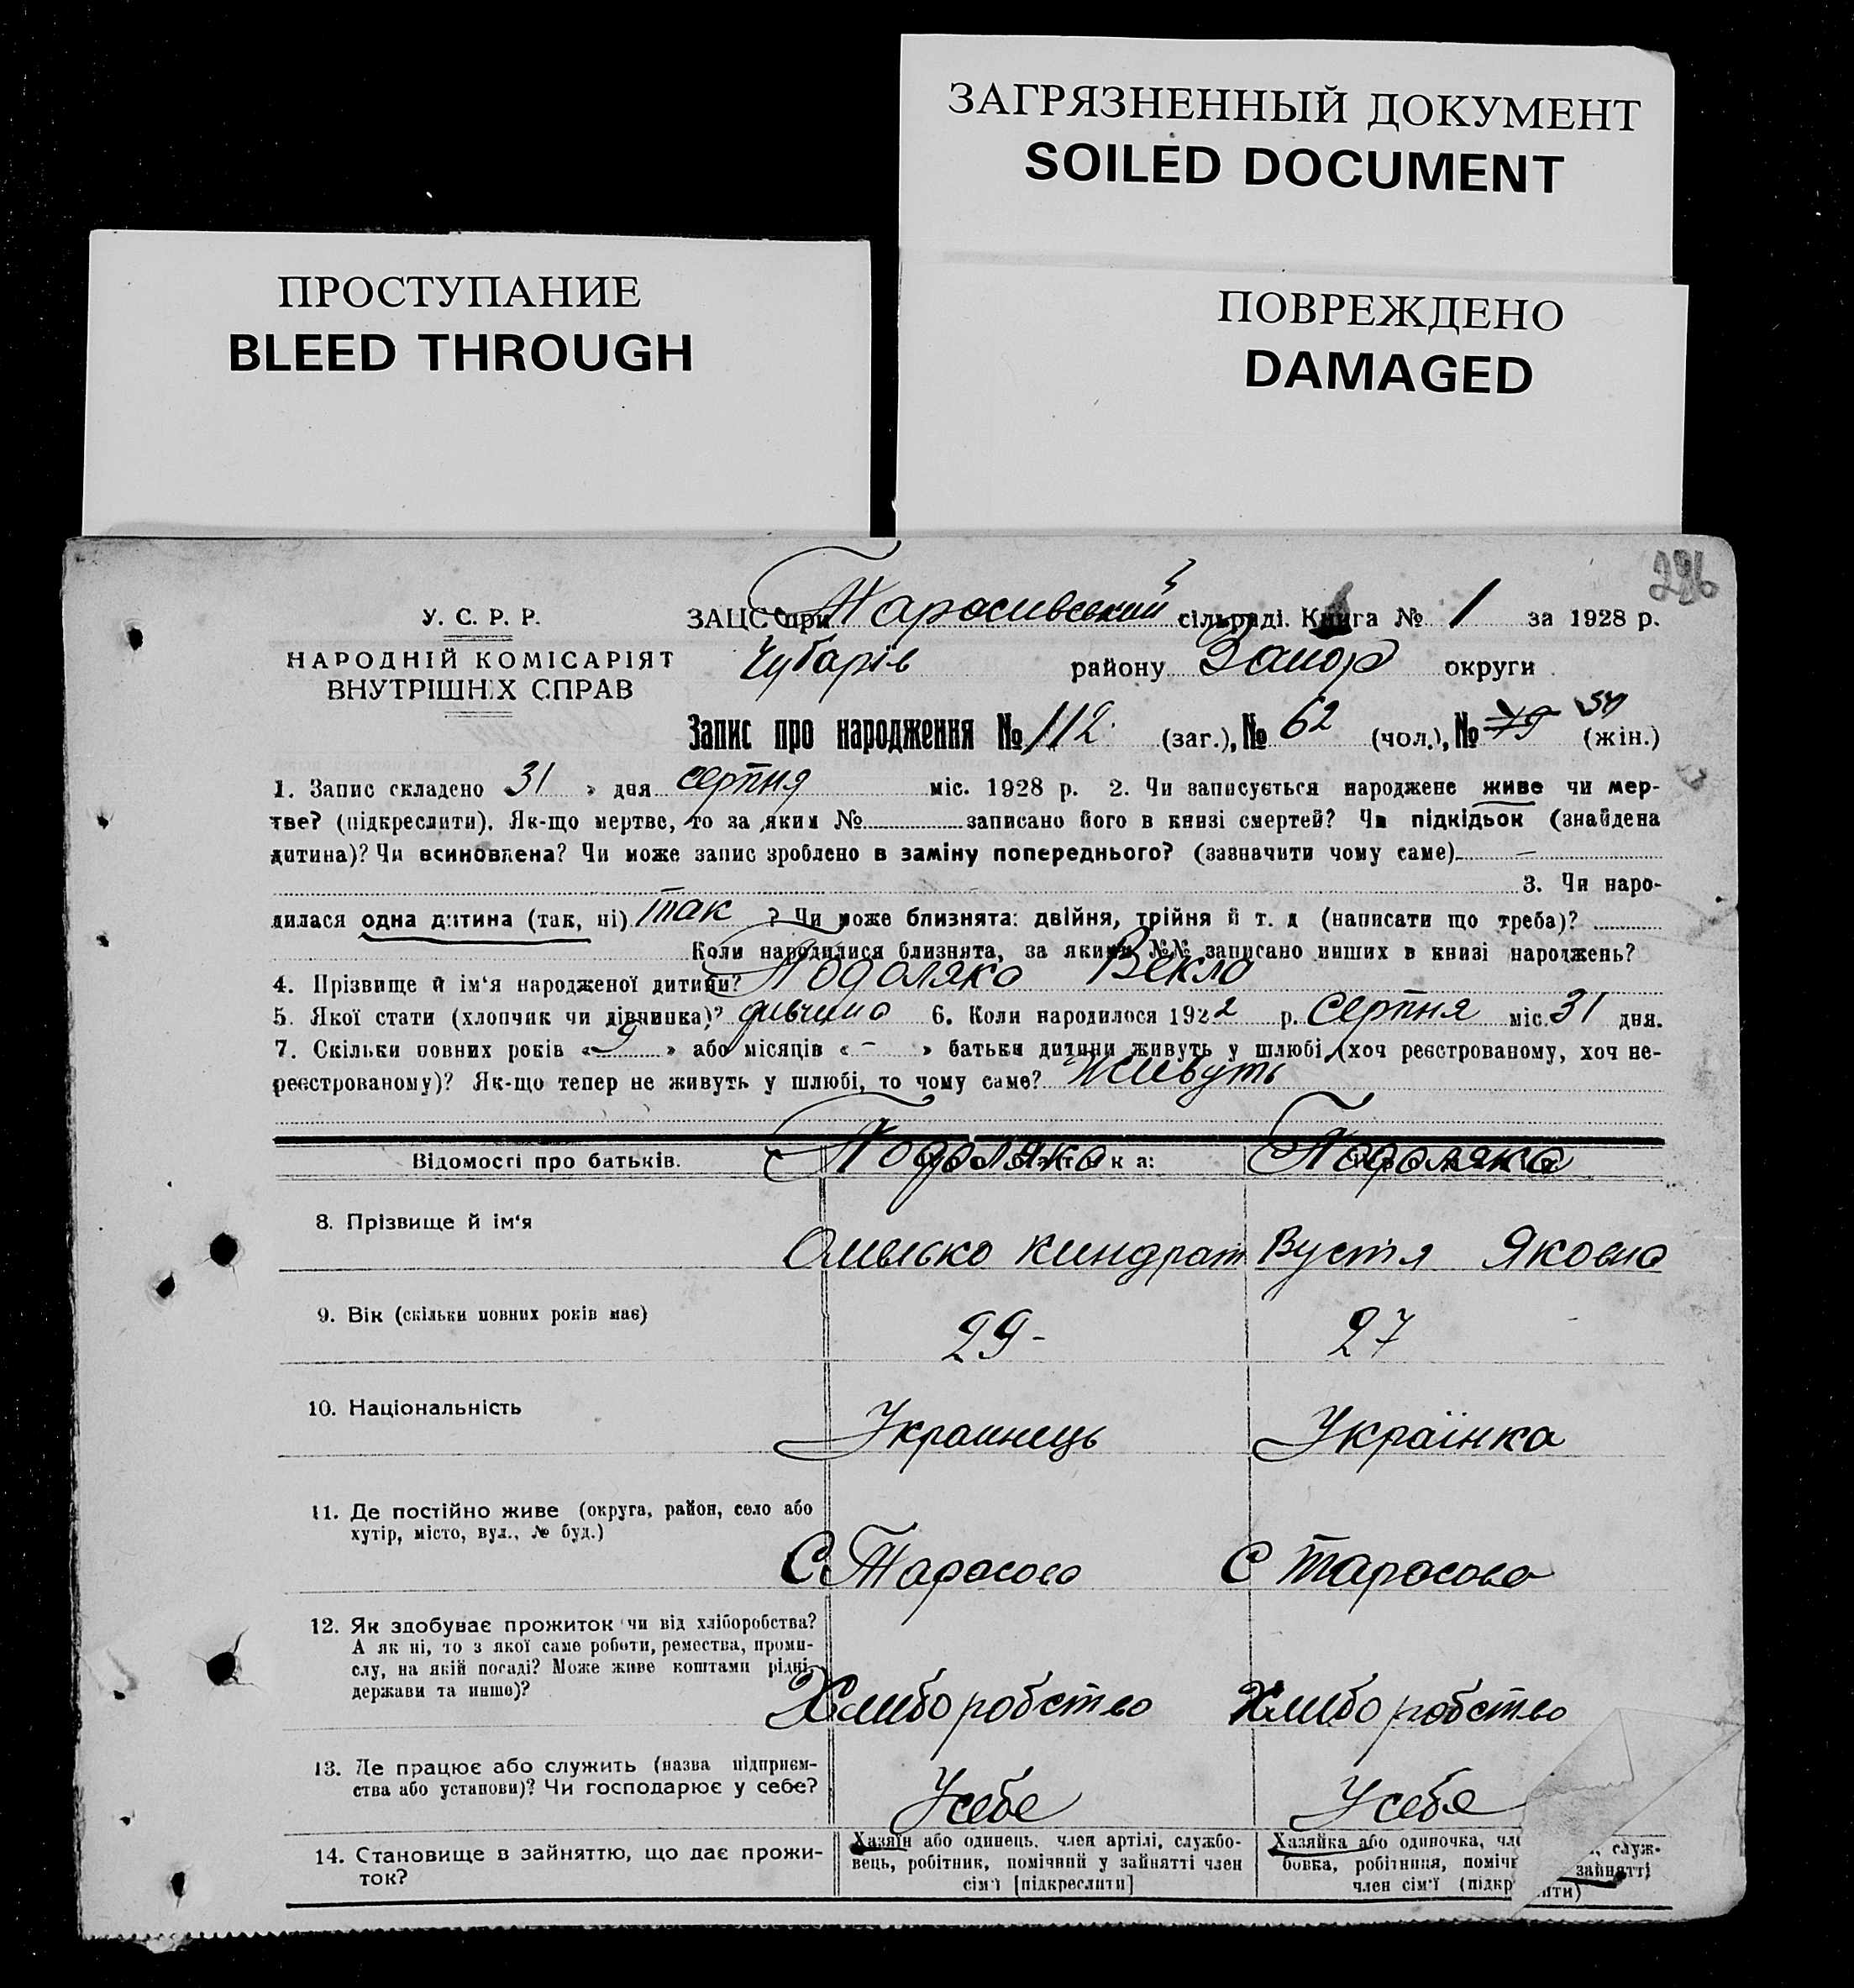 ЗАГРЯЗНЕННЫЙ ДОКУМЕНТ
SOILED DOCUMENT
ПРОСТУПАНИЕ
BLEED THROUGH
ПОВРЕЖДЕНО
DAMAGED
296
У. С. Р. Р.
НАРОДНІЙ КОМІСАРІЯТ
ВНУТРІШНІХ СПРАВ
ЗАЦС при Тарасивській сільраді. Книга № 1 за 1928 р.
Чубарів району Запор округи
Запис про народження № 112 (заг.), № 62 (чол.), № 50 (жін.)
1. Запис складено « 31 » дня серпня міс. 1928 р. 2. Чи записується народжене живе чи мер-
тве? (підкреслити). Як-що мертве, то за яким № записано його в книзі смертей? Чи підкідьок (знайдена
дитина)? Чи всиновлена? Чи може запис зроблено в заміну попереднього? (зазначити чому саме) —
3. Чи наро-
дилася одна дитина (так, ні) так ? Чи може близнята: двійня, трійня й т. д (написати що треба)?
Коли народилися близнята, за якими №№ записано инших в книзі народжень?
4. Прізвище й ім‘я народженої дитини? Подоляка Векла
5. Якої стати (хлопчик чи дівчинка)? дивчина 6. Коли народилося 1922 р. Серпня міс. 31 дня.
7. Скільки повних років « 9 » або місяців « - » батьки дитини живуть у шлюбі (хоч реєстрованому, хоч не-
реєстрованому)? Як-що тепер не живуть у шлюбі, то чому саме? Живуть
Відомості про батьків. Подоляка Подоляка
8. Прізвище й ім‘я
Омелько Киндрат Вустя Яковна
9. Вік (скільки повних років має)
29- 27
10. Національність
Украинець Українка
11. Де постійно живе (округа, район, село або
хутір, місто, вул., № буд.)
С. Тарасова С Тарасова
12. Як здобуває прожиток чи від хліборобства?
А як ні, то з якої саме роботи, ремества, проми-
слу, на якій посаді? Може живе коштами рідні,
держави та инше)?
Хлиборобство Хлиборобство
13. Де працює або служить (назва підприєм-
ства або установи)? Чи господарює у себе?
У себе У себе
14. Становище в зайняттю, що дає прожи-
ток?
Хазяїн або одинець, член артілі, службо-
вець, робітник, помічний у зайнятті член
сім‘ї [підкреслити]
Хазяйка або одиночка, служ-
бовка, робітниця, зайнятті
член сім‘ї